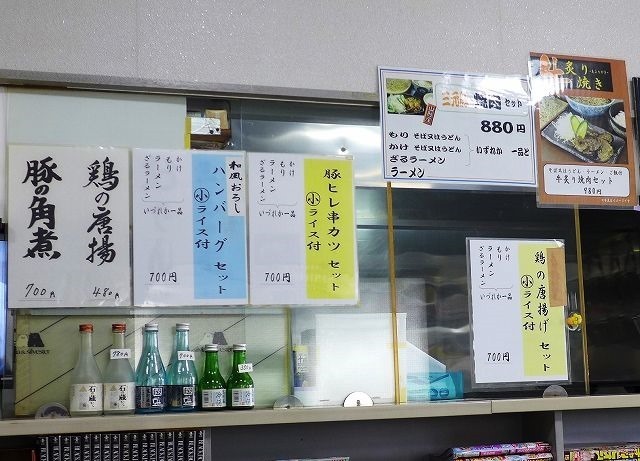 豚の角煮
700円
鶏の唐揚
480円
和風おろし
ハンバーグ セット
小ライス付
かけ
もり
ラーメン
ざるラーメン
いづれか一品
700円
豚ヒレ串カツ セット
小ライス付
かけ
もり
ラーメン
ざるラーメン
いづれか一品
700円
焼肉セット
880円
もり そば又はうどん
かけ そば又はうどん
ざるラーメン
ラーメン
いずれか 一品と
炙り
焼き
そば又はうどん・ラーメン
牛炙り焼肉セット
980円
鶏の唐揚げ セット
小ライス付
かけ
もり
ラーメン
ざるラーメン
いづれか一品
700円